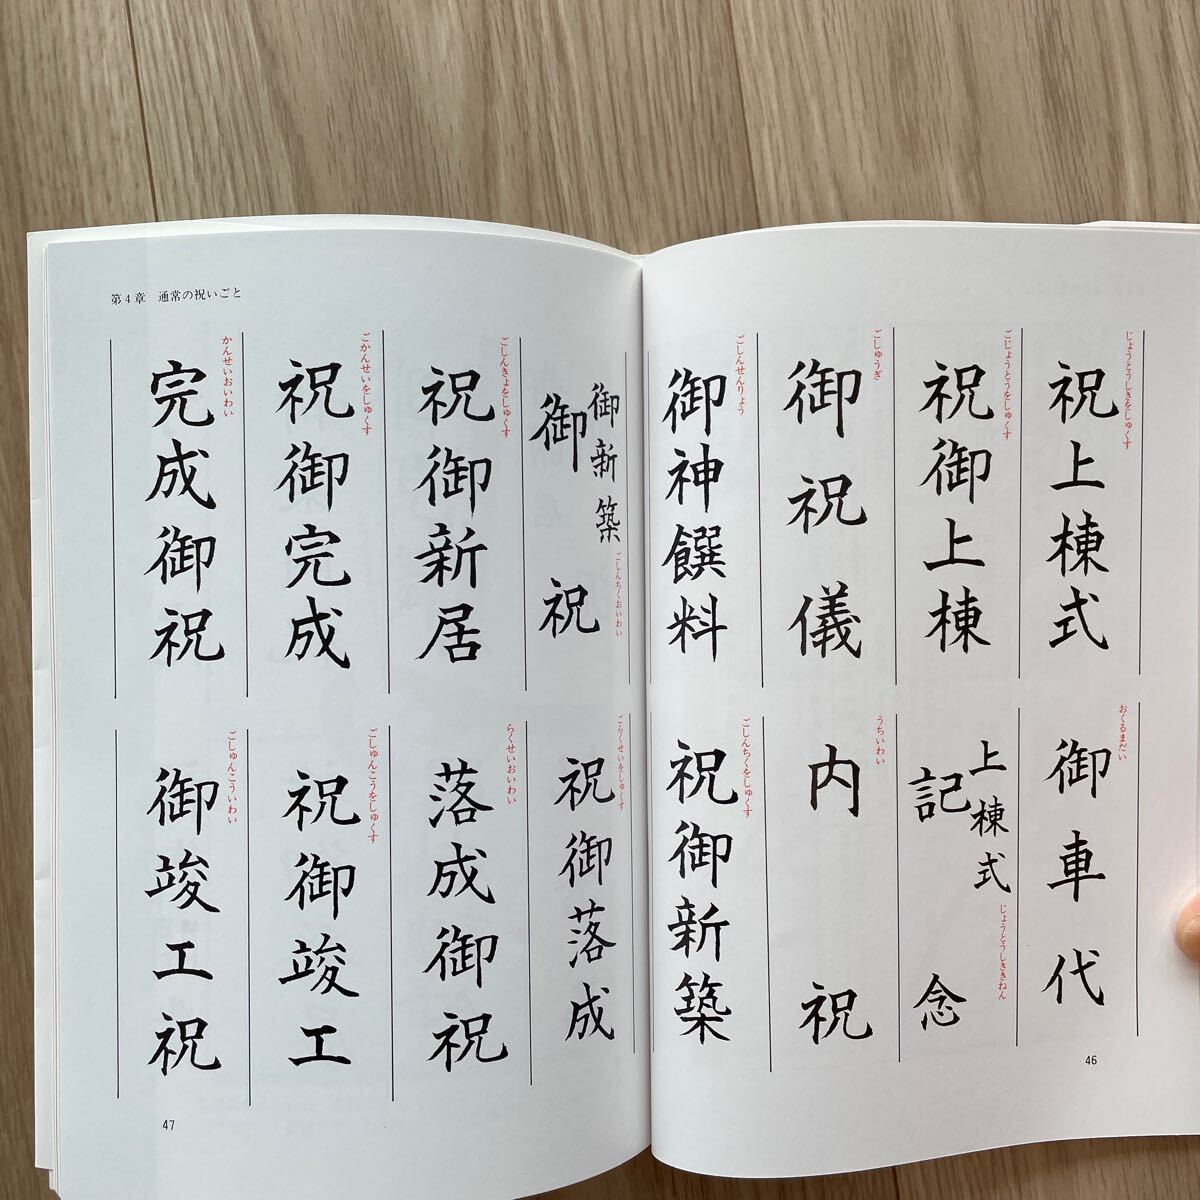 祝上棟式
じょうとうしきをしゅくす
祝御上棟
ごじょうとうをしゅくす
御祝儀
ごしゅうぎ
御神饌料
ごしんせんりょう
御車代
おくるまだい
上棟式
記念
じょうとうしききねん
内祝
うちいわい
祝御新築
ごしんちくをしゅくす
46
第4章 通常の祝いごと
御新築
御祝
ごしんちくおいわい
祝御新居
ごしんきょをしゅくす
祝御完成
ごかんせいをしゅくす
完成御祝
かんせいおいわい
祝御落成
ごらくせいをしゅくす
落成御祝
らくせいおいわい
祝御竣工
ごしゅんこうをしゅくす
御竣工祝
ごしゅんこういわい
47